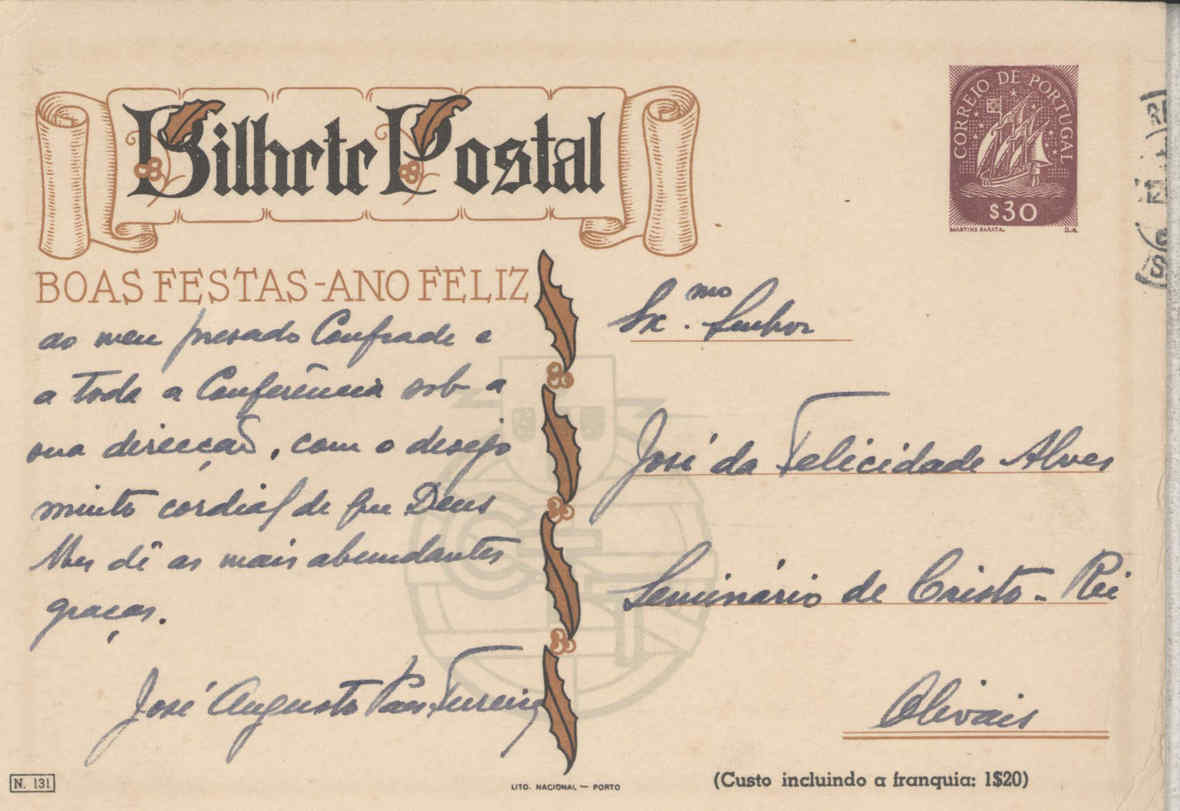 Bilhete Postal
CORREIO DE PORTUGAL
$30
MARTINS BARATA.
BOAS FESTAS-ANO FELIZ
ao meu prezado Confrade e
a toda a Conferência sob a
sua direcção, com o desejo
muito cordial de que Deus
lhes dê as mais abundantes
graças.
José Augusto Pais
Ex.mo Senhor
José da Felicidade Alves
Seminário de Cristo-Rei
Olivais
N. 131
LITO. NACIONAL — PORTO
(Custo incluindo a franquia: 1$20)